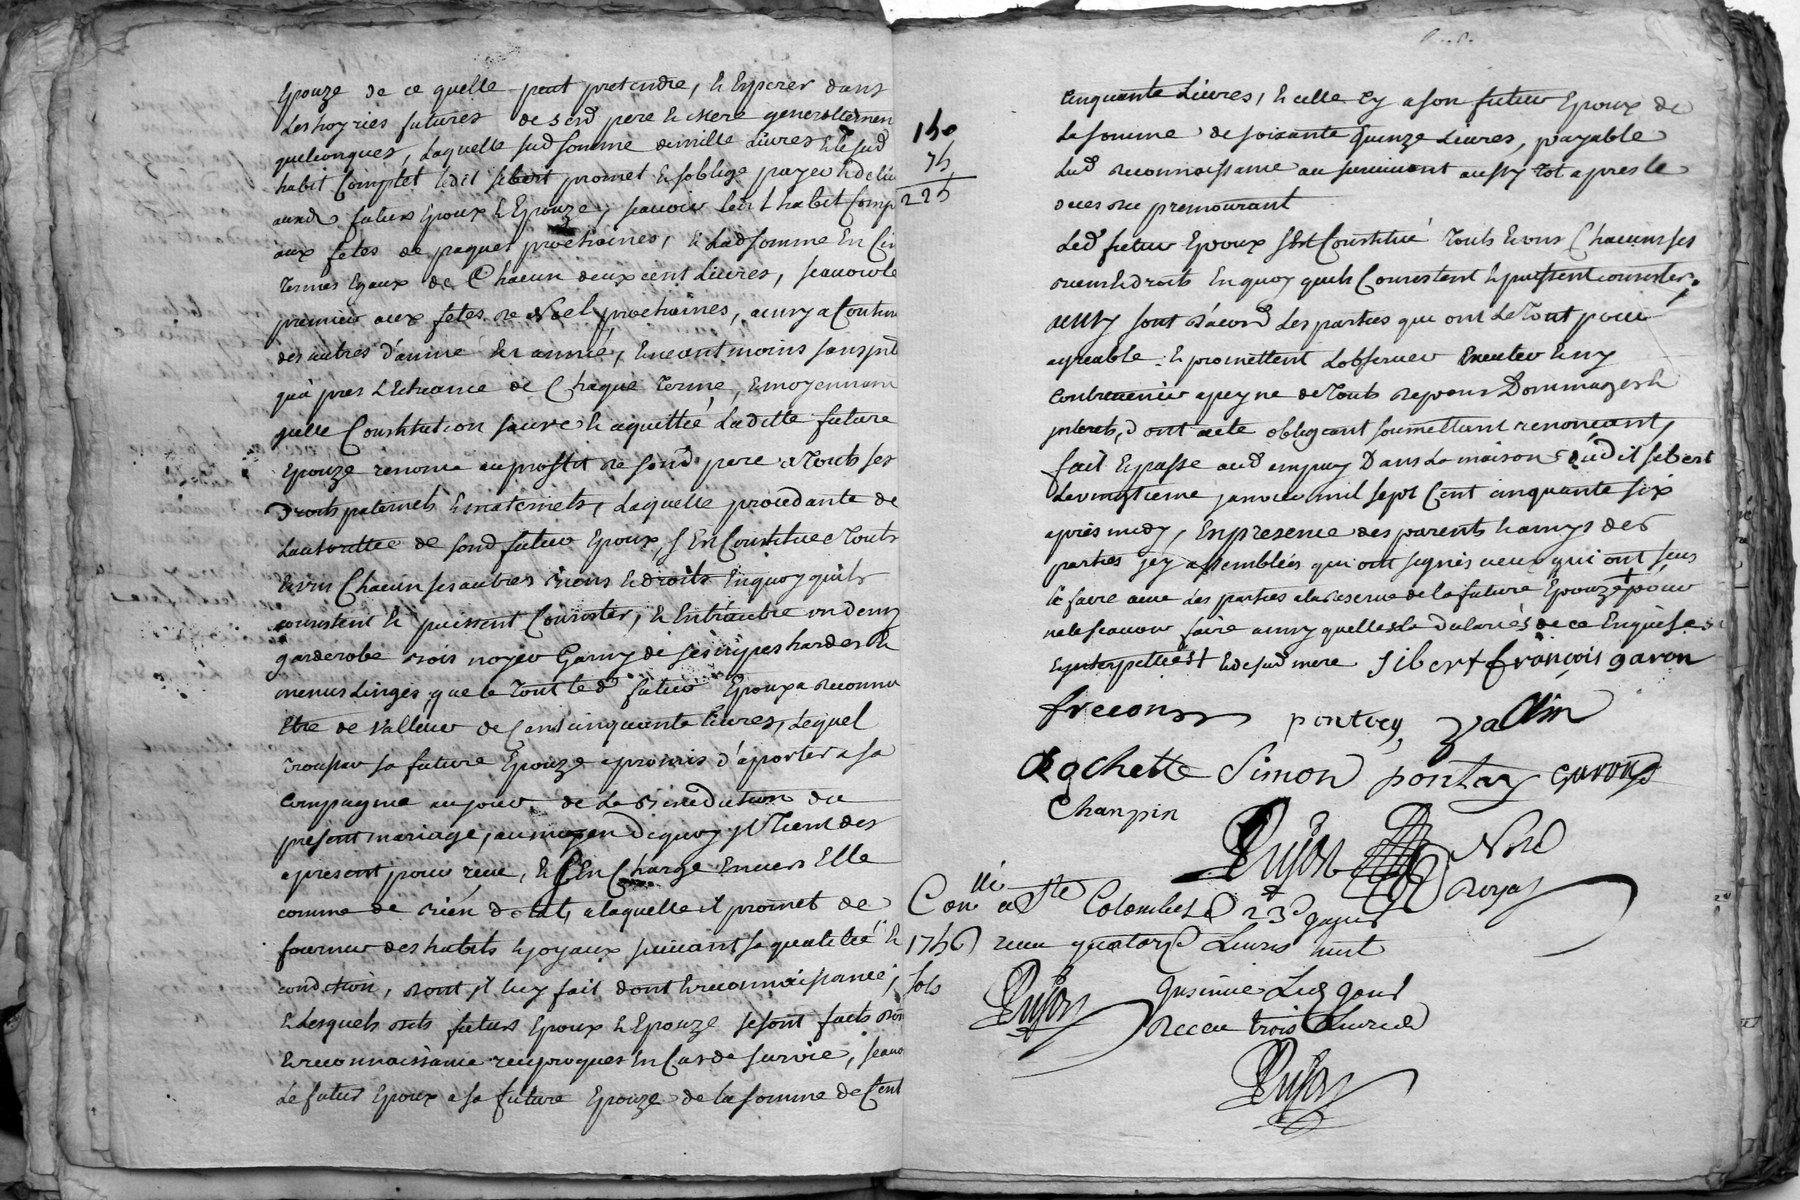 Epouze de ce quelle peut pretendre, & Esperer dans
les hoyries futures de sesd pere & mere generallemen
quelconques, laquelle susd somme de mille Livres & le sud
habit Complet ledit sibert promet & soblige payer & deliv
auxd futurs Epoux & Epouze, scavoir ledit habit Comp
aux fetes de paques prochaines, & lad somme En Cin
termes Egaux de Chacun deux cent Livres, scavoir le
premier aux fetes de Noel prochaines, ainsy a Contin
des autres d'année En année, & neantmoins sans
qu'apres L'Echeance de Chaque terme, & moyennant
Constitution faitte & aquittée Laditte future
Epouze renonce au proffit de sond pere a touts ses
Droits paternels & maternels, Laquelle procedante de
Lauthorittée de sond futur Epoux s'En Constitue touts
& uns Chacun ses autres biens & droits En quoy quils
consistent & puissent Consister, & Entr'autre un demy
garderobe bois noyer Garny de ses nipes hardes &
menus Linges, que le tout led futur Epoux a reconnu
Etre de valleur de Cent cinquante livres, Lequel
trousseau sa future Epouze a promis d'aporter a sa
Compagnie au jour de La Benediction du
present mariage, au moyen dequoy il tient des
apresent pour receu, & s'En Charge Envers Elle
comme de bien dotal, a laquelle il promet de
fournir des habits & joyaux suivant sa qualitée &
condition, dont il luy fait dont & reconnoissance,
& Lesquels dits futurs Epoux & Epouze se sont faits don
& reconnoissance reciproques En Cas de survie, scavo
Le futur Epoux a sa future Epouze de la somme de Cent
150
75
225
Cinquante Livres, & celle Cy a son futur Epoux de
la somme de soixante Quinze Livres, payable
lad reconnoissance au survivant aussy tot apres le
deces du premourant
Led futur Epoux sest Constitué touts & uns Chacuns ses
biens & droits En quoy quils Consistent & puissent consister,
ainsy sont d'acord les parties qui ont Le tout pour
agreable & promettent L'observer Executer & ny
Contrevenir a peyne de touts depens Dommages &
interets, dont acte obligeant soumettant renonceant,
fait & passe aud ampuy Dans La maison dudit sibert
Le vingtieme janvier mil sept Cent cinquante six
après midy, En presence des parents & amys des
parties icy assemblés qui ont signés ceux qui ont sceu
le faire avec Les parties a la reserve de la future Epouze pour
ne le scavoir faire ainsy quelle la Declarés de ce Enquise
& interpellée & de sad mere Sibert françois garon
frecon pontvey Vallin
Rochette Simon pontvey garon
Chanpin
Dujon Nord
Royat
Con.lle a Ste Colombe le 23e janvr
1756 receu quatorze Livres huit
sols
Dujon Insinué Led jour
Receu trois Livres
Dujon